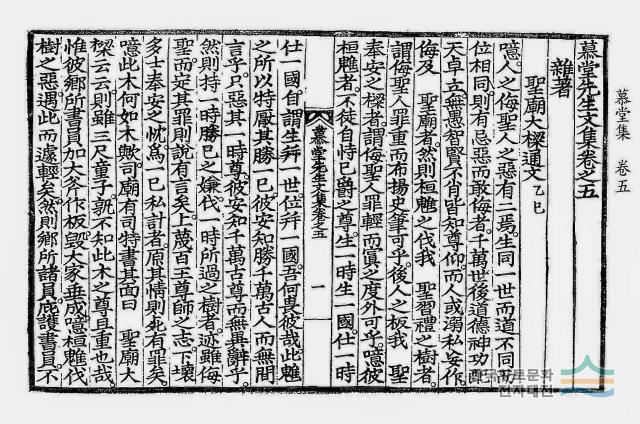 慕堂先生文集卷之五
雜著
聖廟大樑通文 乙巳
噫人之侮聖人之惡有二焉生同一世而道不同
位相同則有忌惡而敢侮者千萬世後道德神功
天卓立無愚智賢不肖皆知尊仰而人或溺私妄作
侮及 聖廟者然則桓魋之伐我 聖習禮之樹者
謂侮聖人罪重而布揚史筆可乎後人之板我 聖
奉安之樑者謂侮聖人罪輕而寘之度外可乎噫彼
桓魋者不徒自恃已爵之尊生一時生一國仕一時
慕堂先生文集卷之五 一
仕一國自謂生並一世位並一國吾何畏彼哉此魋
之所以特厭其勝一已彼安知勝千萬古人而無間
言乎只惡其一時尊彼安知千萬古尊而無異辭乎
然則持一時勝已之嫌伐一時所過之樹者迹雖侮
聖而定其罪則說有言矣上蔑百王尊師之志下壞
多士奉安之忱爲一已私計者原其情則死有罪矣
噫此木何如木歟司廟有司特書其面曰 聖廟大
樑云云則雖三尺童子孰不知此木之尊且重也哉
惟彼鄉所書員加大斧作板毀大家垂成噫桓魋伐
樹之惡遇此而遽輕矣然則鄉所諸員庇護書員不
慕堂集 卷五
한국전통문화
전자대전